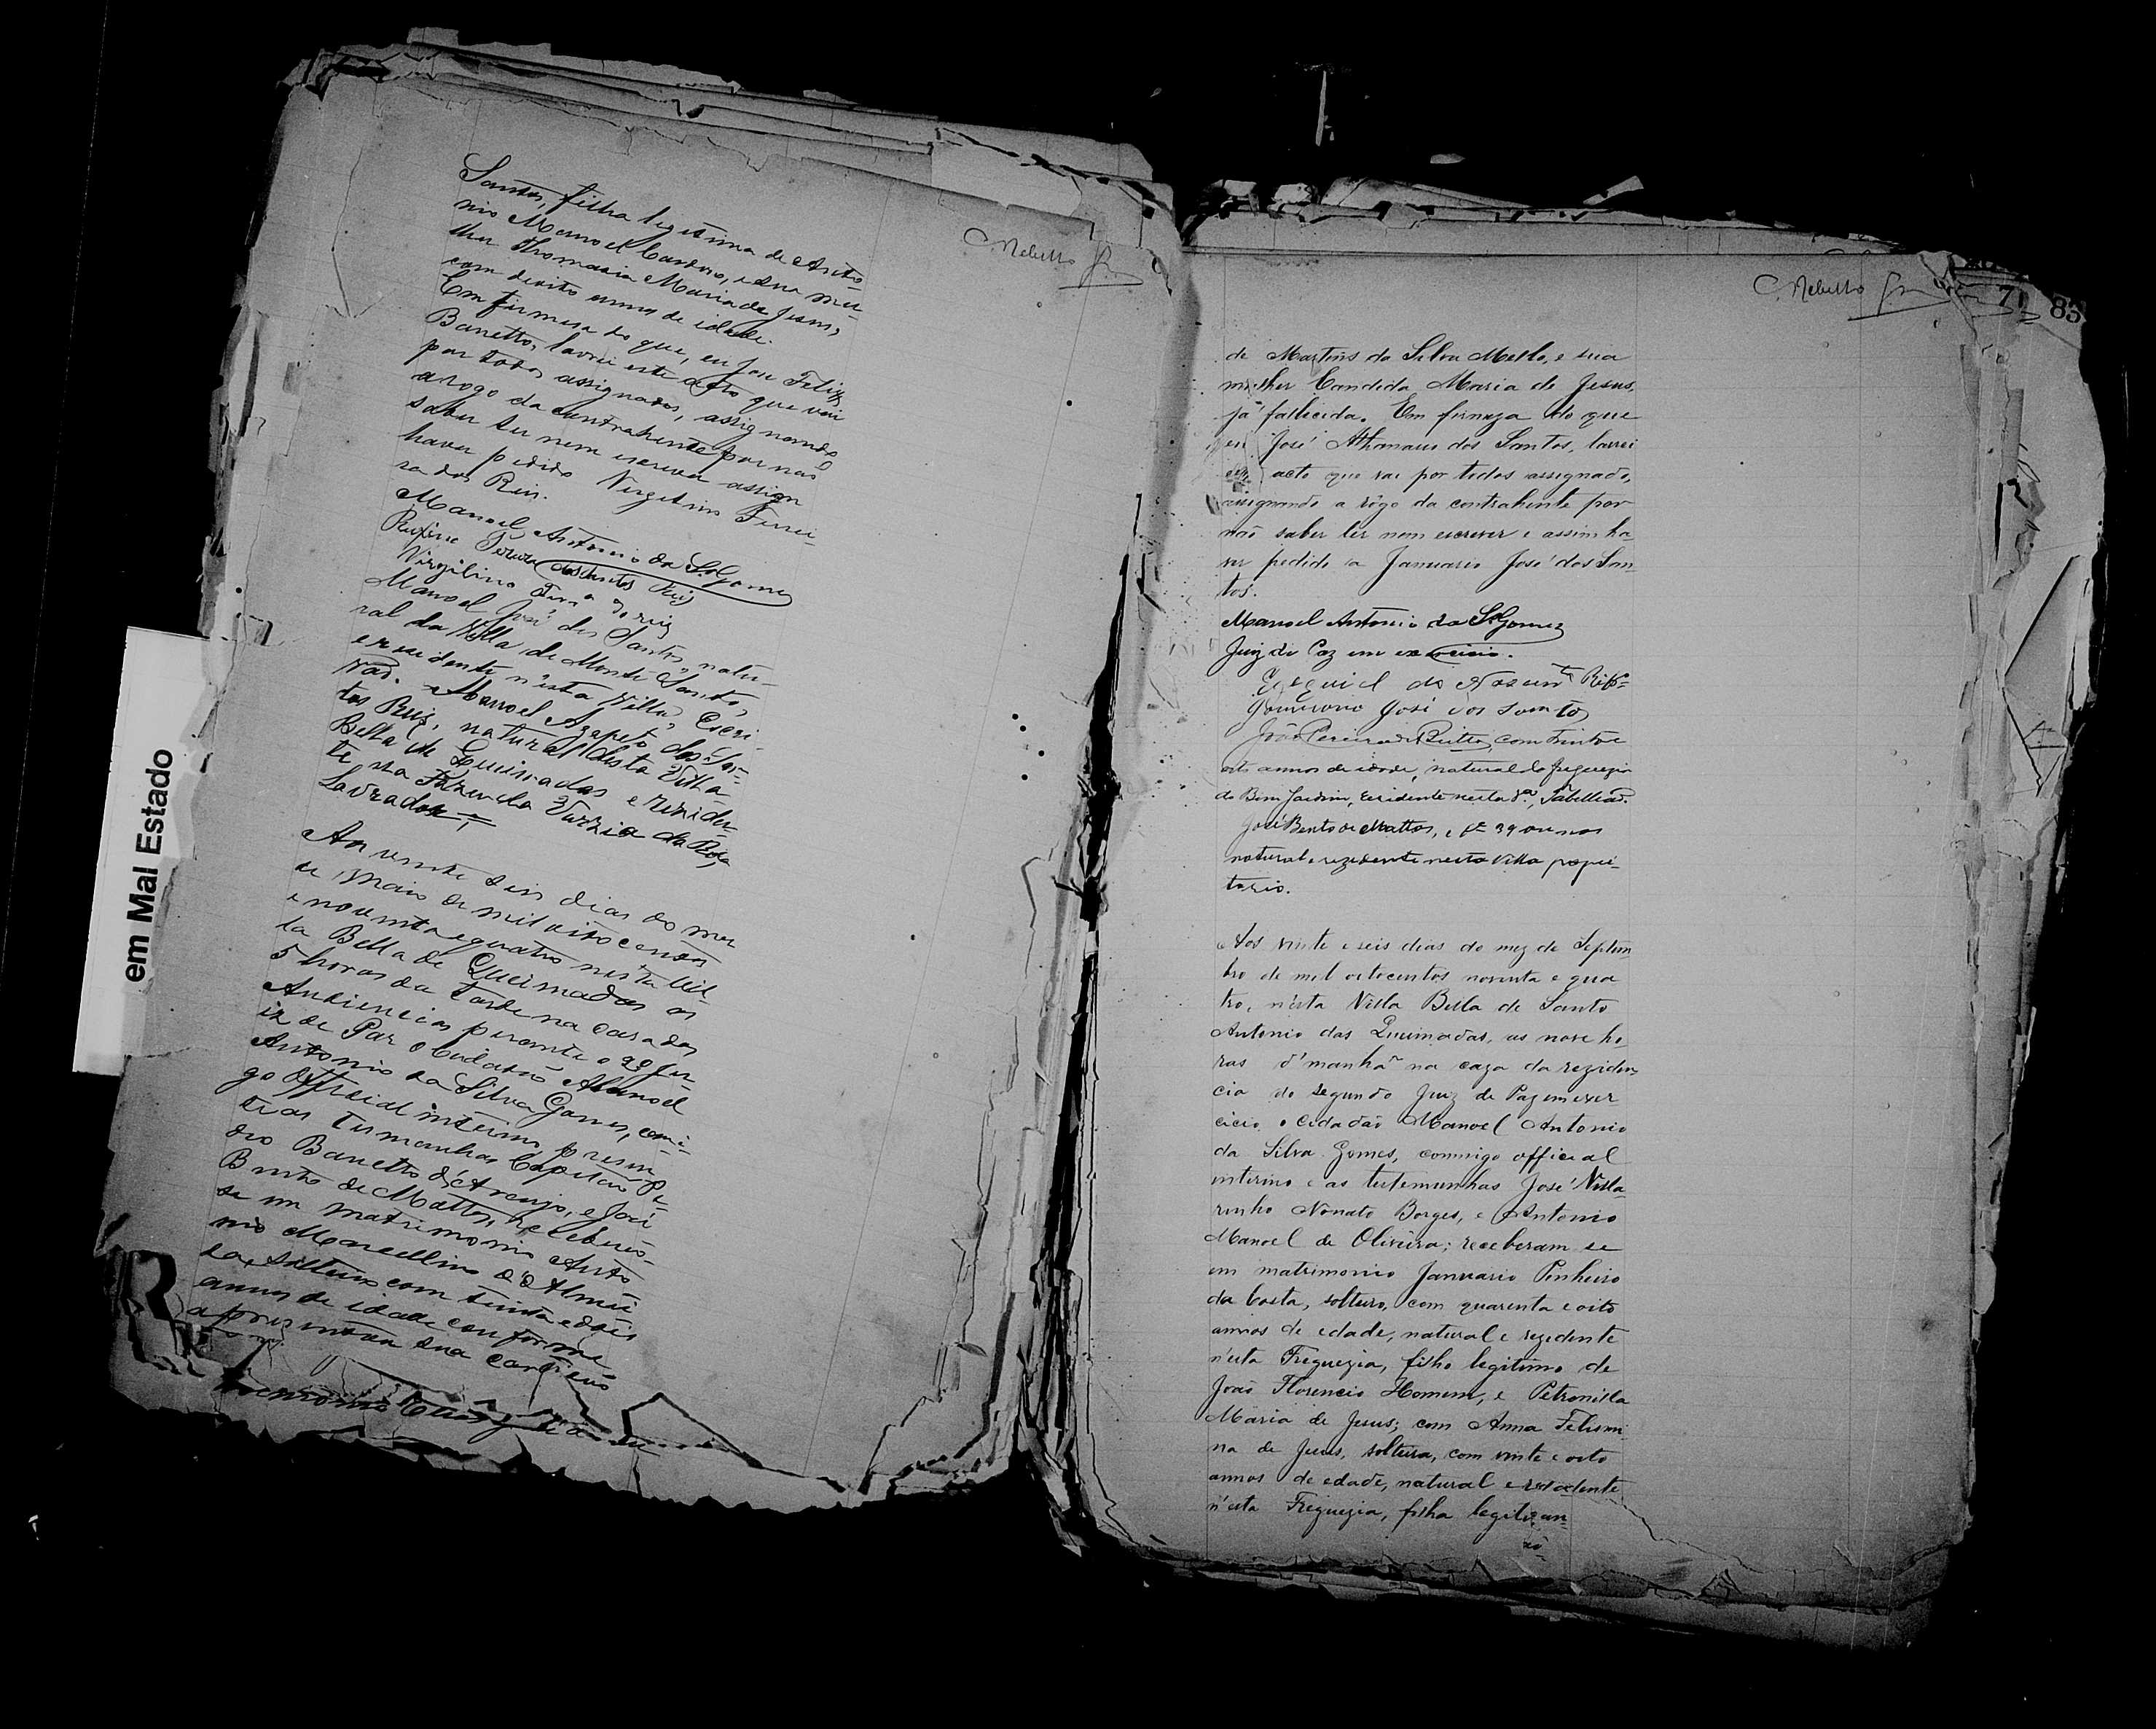 em Mal Estado
Santos, filha legitima de Anto-
nio Manoel Cardoso, e sua mu-
lher Thomasia Maria de Jesus,
com desoito annos de idade.
Em firmesa do que, eu José Felix
Barretto, lavrei este acto que vai
por todos assignados, assignando
a rogo da contrahente por não
saber ler nem escrever assign
haver pedido Virgilino Ferrei-
ra dos Reis.
Manoel Antonio da Sª Gomes
Rufino Pereira dos Santos Reis
Virgilino Ferrª dos Reis
Manoel José dos Santos, natu-
ral da Villa de Monte Santo,
e residente nesta Villa, Escri-
vão. Manoel Agapeto dos San-
tos Reis, natural desta Villa
Bella de Queimadas e reziden-
te na Fazenda Varzia da Roça
Lavrador
Ao vinte seis dias do mez
de Maio de mil oito centos
e noventa e quatro nesta Vil-
la Bella de Queimadas as
5 horas da tarde na casa das
Audiencias perante o 2º Ju-
iz de Paz o Cidadão Manoel
Antonio da Silva Gomes, comi-
go Official interino presen-
tias timunhas Capitão Pe-
dro Barretto d'Araujo, e José
Bento de Mattos, receberão-
se em matrimonio Anto
nio Marcellino d'Almei
da, solteiro com trinta e dois
annos de idade conforme
aprezentou sua certidão
Rebello
Rebello
71 83
de Martins da Silva Mello, e sua
mulher Candida Maria de Jesus,
já fallicida. Em firmeza do que
eu José Athanasio dos Santos, lavrei
este acto que vai por todos assignado,
assignando a rôgo da contrahente por
não saber ler nem escrever e assim ha-
ver pedido a Januario José dos San-
tos.
Manoel Antonio da Sª Gomes
Juiz de Paz em exercicio.
Esequiel do Nascimto
José dos Santos
João Pereira de Britto, com trinta e
oito annos de idade, natural da freguezia
do Bom Jardim, residente nesta Vª, Tabellião.
José Bento de Mattos, 39 annos
natural e rezidente nesta Villa proprie-
tario.
Aos vinte e seis dias do mez de Septem
bro de mil oitocentos noventa e qua
tro, n'esta Villa Bella de Santo
Antonio das Queimadas, as nove ho
ras d'manhã na caza da reziden-
cia do segundo Juiz de Paz em exer-
cicio o Cidadão Manoel Antonio
da Silva Gomes, commigo official
interino e as testemunhas José Villa-
rinho Nonato Borges, e Antonio
Manoel de Oliveira; receberam se
em matrimonio Januario Pinheiro
da Costa, solteiro, com quarenta e oito
annos de edade, natural e rezedente
n'esta Freguezia, filho legitimo de
João Florencio Homem, e Petronilla
Maria de Jesus; com Anna Felismi
na de Jesus, solteira, com vinte e oito
annos de edade, natural e residente
n'esta Freguezia, filha legitiman-